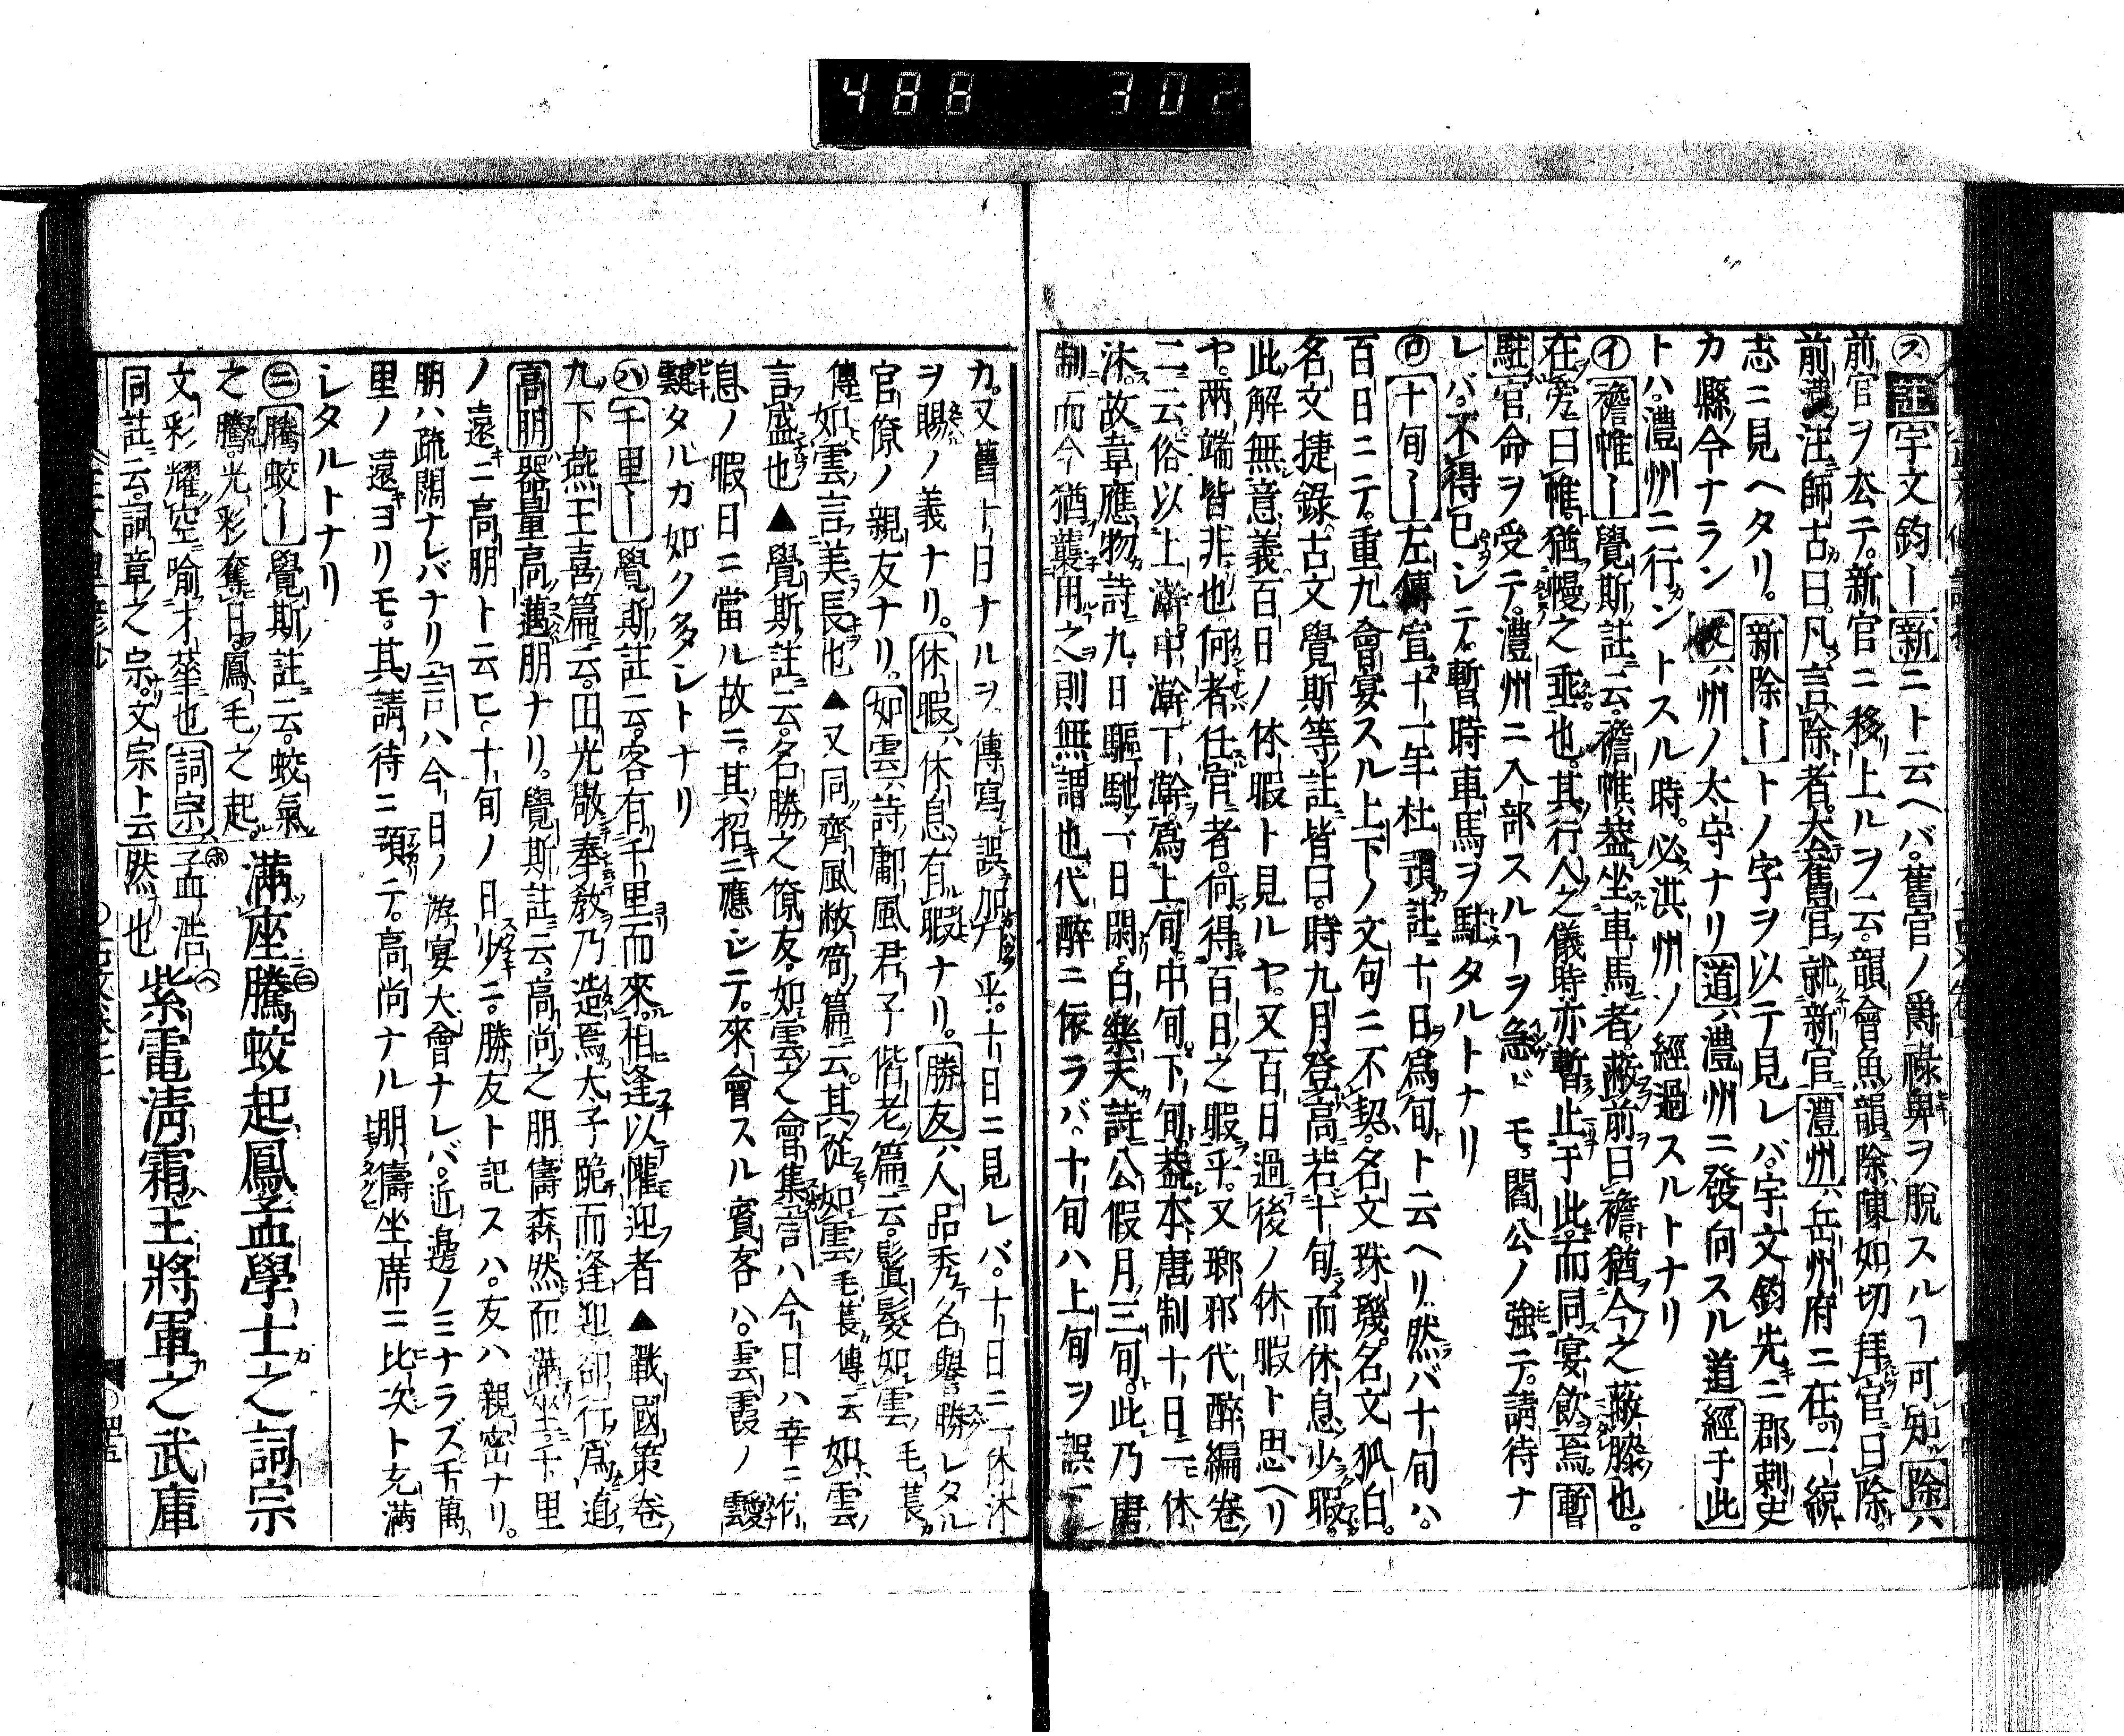 488 302
㋜註宇文鈞ー新ニト云ヘバ。舊官ノ爵祿與ヲ脫スルヿ可知除ハ
前官ヲ厺テ。新官ニ移上ルヲ云。韻會魚韻除陳如切拜官曰除。
前漢注師古曰。凡言除者。去舊官就新官澧州ハ岳州府ニ在。一統
志ニ見ヘタリ。新除ートノ字ヲ以テ見レバ。宇文鈞先ニ郡刺史
カ縣令ナラン牧ハ州ノ太守ナリ道ハ澧州ニ發向スル道經于此
トハ。澧州ニ行ントスル時。必洪州ノ經過スルトナリ
㋑襜帷ー覺斯註云。襜帷。蓋坐車馬者。蔽前曰襜。猶今之蔽膝也。
在旁曰帷。猶幔之垂也。其行人之儀時亦暫止于此。而同宴飮焉。暫
駐官命ヲ受テ。澧州ニ入部スルヿヲ急ドモ。閻公ノ強テ。請待ナ
レバ。不得已シテ。暫時車馬ヲ駐タルトナリ
㋺十旬ー左傳宣十一年杜預註十日爲旬ト云ヘリ。然バ十旬ハ。
百日ニテ。重九會宴スル上下ノ文句ニ不契。名文珠璣。名文狐白。
名文捷錄。古文覺斯等註皆曰。時九月登高若十旬而休息少暇。
此解無意義百日ノ休暇ト見ルヤ。又百日過後ノ休暇ト思ヘリ
ヤ。兩端皆非也何者任官者。何得百日之暇乎。又瑯邪代醉編卷
二云俗以上澣中澣下澣。爲上旬中旬下旬。蓋本唐制十日一休
沐。故韋應物詩九日驅馳一日閑。白樂天詩公假月三旬。此乃唐
制而今猶襲用之則無謂也代醉ニ依ラバ。十旬ハ上旬ヲ誤
カ。又舊十日ナルヲ傳寫誤加乎。十日ニ見レバ。十日ニ一休沐
ヲ賜ノ義ナリ。休暇ハ休息有暇ナリ。勝友ハ人品秀名譽勝レタル
官僚ノ親友ナリ。如雲ハ詩鄘風君子偕老篇云。鬒髮如雲毛萇
傳如雲言美長也▲又同齊風敝笱篇云。其從如雲毛萇傳云如雲
言盛也▲覺斯註云。名勝之僚友。如雲之會集言ハ今日ハ幸ニ作
息ノ暇日ニ當ル故ニ。其招ニ應シテ。來會スル賓客ハ。雲霞ノ靉
靆タルガ如ク多シトナリ
㋩千里ー覺斯註云。客有千里而來。相逢以懽迎者▲戰國策卷
九下燕王喜篇云。田光敬奉敎乃造焉。太子跪而逢迎卻行爲道
高朋器量高邁朋ナリ。覺斯註云。高尙之朋儔森然而滿坐。千里
ノ遠ニ高朋ト云ヒ。十旬ノ日少ニ。勝友ト記スハ。友ハ親密ナリ。
朋ハ疏闊ナレバナリ言ハ今日ノ游宴大會ナレバ。近邊ノミナラズ千萬
里ノ遠ヨリモ。其請待ニ頼テ。高尙ナル朋儔坐席ニ比次ト充滿
シタルトナリ
㋥騰蛟ー覺斯註云。蛟氣
之騰。光彩奪日。鳳毛之起。
文彩耀空喩才華也詞宗ハ
同註云。詞章之宗。文宗ト云
滿座騰蛟起鳳孟學士之詞宗
孟浩
然也
紫電淸霜王將軍之武庫